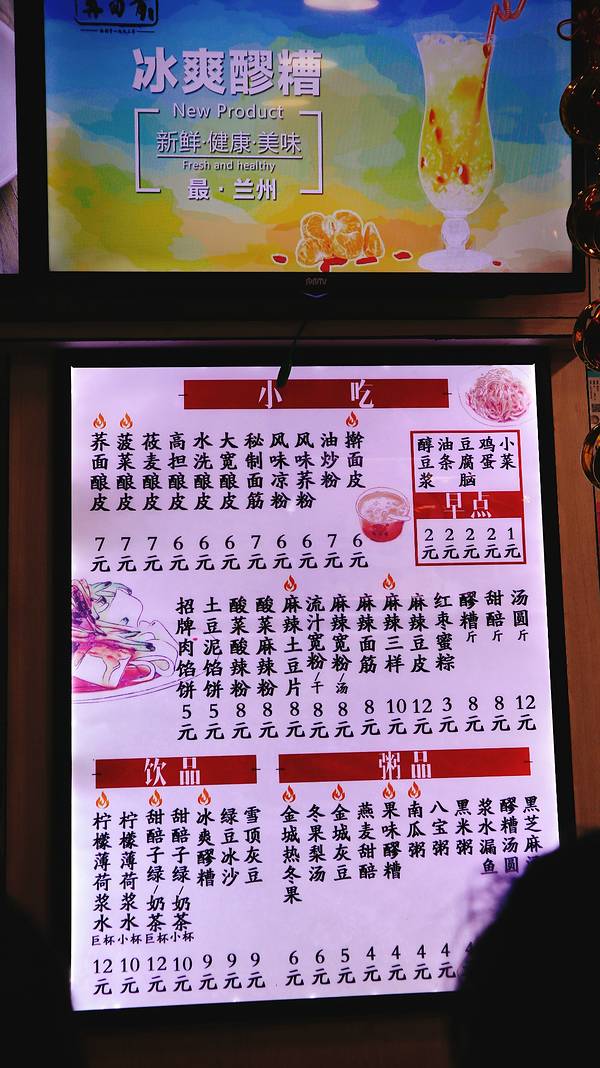 冰爽醪糟
New Product
新鲜·健康·美味
Fresh and healthy
最·兰州
小吃
荞面酿皮 7元
菠菜酿皮 7元
莜麦酿皮 7元
高担酿皮 6元
水洗酿皮 6元
大宽酿皮 6元
秘制面筋 7元
风味凉粉 6元
风味荞粉 6元
油炒粉 7元
擀面皮 6元
早点
醇豆浆 2元
油条 2元
豆腐脑 2元
鸡蛋 2元
小菜 1元
招牌肉馅饼 5元
土豆泥馅饼 5元
酸菜酸辣粉 8元
酸菜麻辣粉 8元
麻辣土豆片 8元
流汁宽粉/干 8元
麻辣宽粉/汤 8元
麻辣面筋 8元
麻辣三样 10元
麻辣土豆皮 12元
红枣蜜粽 3元
醪糟斤 8元
甜醅斤 8元
汤圆斤 12元
饮品
柠檬薄荷浆水巨杯 12元
柠檬薄荷浆水小杯 10元
甜醅子绿/奶茶巨杯 12元
甜醅子绿/奶茶小杯 10元
冰爽醪糟 9元
绿豆冰沙 9元
雪顶灰豆 9元
粥品
金城热冬果 6元
冬果梨汤 6元
金城灰豆 5元
燕麦甜醅 4元
果味醪糟 4元
南瓜粥 4元
八宝粥 4元
黑米粥
浆水漏鱼
醪糟汤圆
黑芝麻